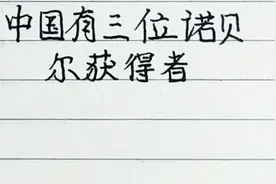 中国有三位诺贝
尔获得者